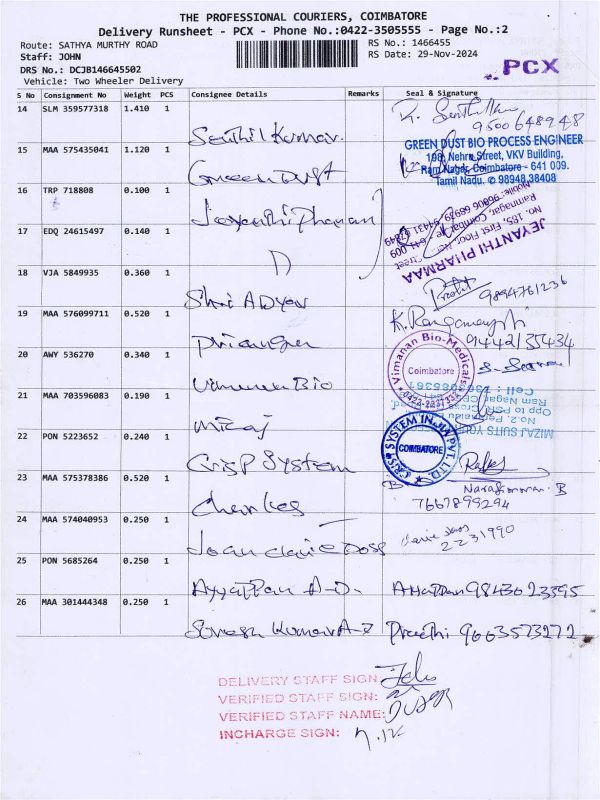 THE PROFESSIONAL COURIERS, COIMBATORE
Delivery Runsheet - PCX - Phone No.:0422-3505555 - Page No.:2
Route: SATHYA MURTHY ROAD
Staff: JOHN
DRS No.: DCJB146645502
Vehicle: Two Wheeler Delivery
RS No.: 1466455
RS Date: 29-Nov-2024
PCX
S No Consignment No Weight PCS Consignee Details Remarks Seal & Signature
14 SLM 359577318 1.410 1 Senthil Kumar.
9500648948
15 MAA 575435041 1.120 1 Green Dust
GREEN DUST BIO PROCESS ENGINEER
198, Nehru Street, VKV Building,
Ram Nagar, Coimbatore - 641 009.
Tamil Nadu. ✆ 98948 38408
16 TRP 718808 0.100 1 Jeyanthi Pharma
JEYANTHI PHARMAA
No. 185, First Floor, Street
Ramnagar, Coimbatore - 641 009
17 EDQ 24615497 0.140 1
18 VJA 5849935 0.360 1 Shri ADyar
9894761236
19 MAA 576099711 0.520 1
20 AWY 536270 0.340 1 Vimanan Bio
Vimanan Bio-Medicals
Coimbatore
21 MAA 703596083 0.190 1 Mizaj
MIZAJ SUITS YOU
22 PON 5223652 0.240 1 Crisp System
CRISP SYSTEM INJIA PVT. LTD.
COIMBATORE
23 MAA 575378386 0.520 1 Charles
B
7667899294
24 MAA 574040953 0.250 1 Joan Claire Doss
2231990
25 PON 5685264 0.250 1 Ayyappan A-D.
9843023595
26 MAA 301444348 0.250 1 Suresh Kumar Preethi 9663573272
DELIVERY STAFF SIGN:
VERIFIED STAFF SIGN:
VERIFIED STAFF NAME:
INCHARGE SIGN: